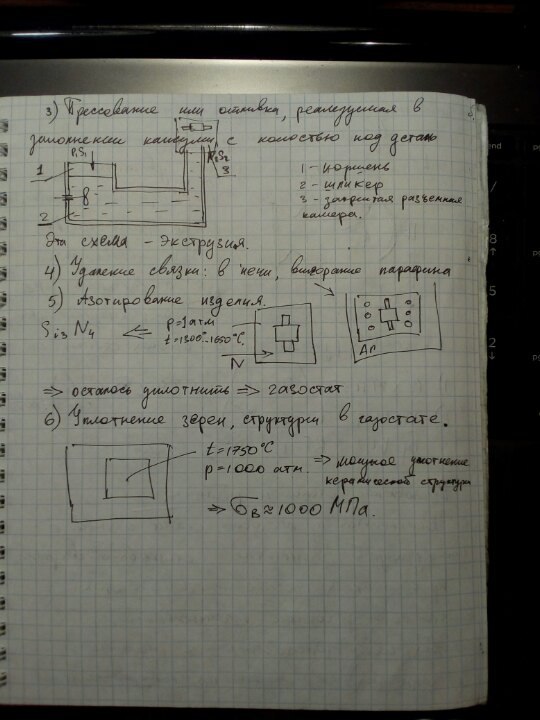 3) Прессование или отливка, реализуемая в
заполнении капсулы с полостью под деталь
P₁S₁
P₂S₂
1
3
2
1 - поршень
2 - шликер
3 - закрытая разъемная
камера.
Эта схема - экструзия.
4) Удаление связки: в печи, выгорание парафина
5) Азотирование изделия.
Si₃N₄ ⇐ p=1атм
t=1300°-1650°C.
N
Ar
⇒ осталось уплотнить ⇒ газостат
6) Уплотнение зерен, структуры в газостате.
t=1750°C
p=1000 атм. ⇒ мощное уплотнение
керамической структуры
⇒ σв≈1000 МПа.